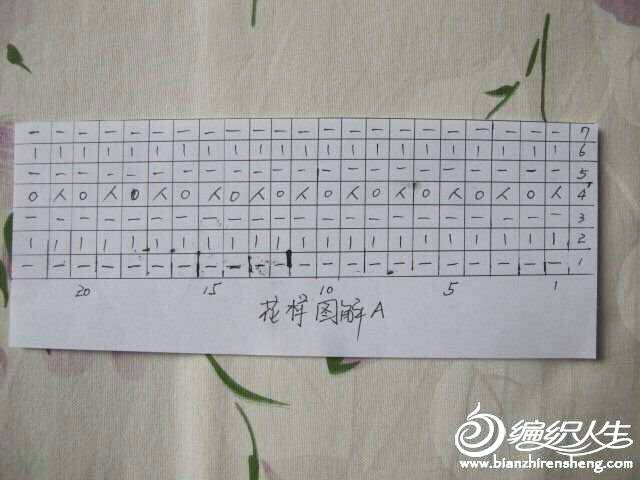 — — — — — — — — — — — — — — — — — — — — — — 7
| | | | | | | | | | | | | | | | | | | | | | 6
— — — — — — — — — — — — — — — — — — — — — — 5
O 人 O 人 O 人 O 人 O 人 O 人 O 人 O 人 O 人 O 人 O 人 4
— — — — — — — — — — — — — — — — — — — — — — 3
| | | | | | | | | | | | | | | | | | | | | | 2
— — — — — — — — — — — — — — — — — — — — — — 1
20 15 10 5 1
花样图解A
编织人生
www.bianzhirensheng.com